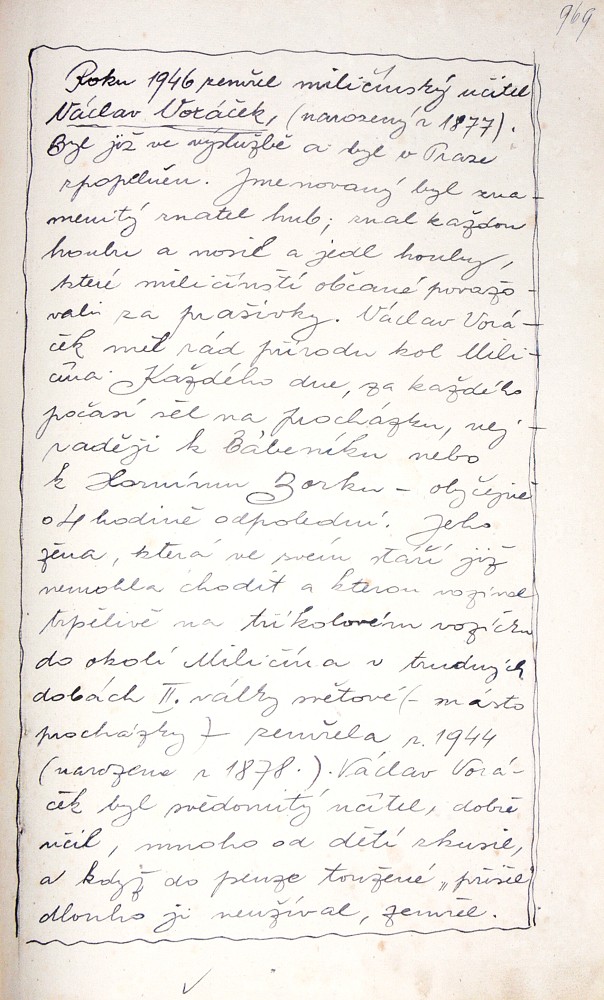 969
Roku 1946 zemřel miličínský učitel
Václav Voráček, (narozený r 1877).
Byl již ve výslužbě a byl v Praze
zpopelněn. Jmenovaný byl zna-
menitý znatel hub; znal každou
houbu a nosil a jedl houby,
které miličínští občané považo-
vali za prašivky. Václav Vorá-
ček měl rád přírodu kol Mili-
čína. Každého dne, za každého
počasí šel na procházku, nej-
raději k Bábeníku nebo
k Hornímu Borku - obyčejně
o 4 hodině odpolední. Jeho
žena, která ve svém stáří již
nemohla chodit a kterou vozíval
trpělivě na tříkolovém vozíčku
do okolí Miličína v trudných
dobách II. války světové (- místo
procházky) - zemřela r. 1944
(narozena r 1878.). Václav Vorá-
ček byl svědomitý učitel, dobře
učil, mnoho od dětí zkusil,
a když do penze toužené „přišel"
dlouho ji neužíval, zemřel.